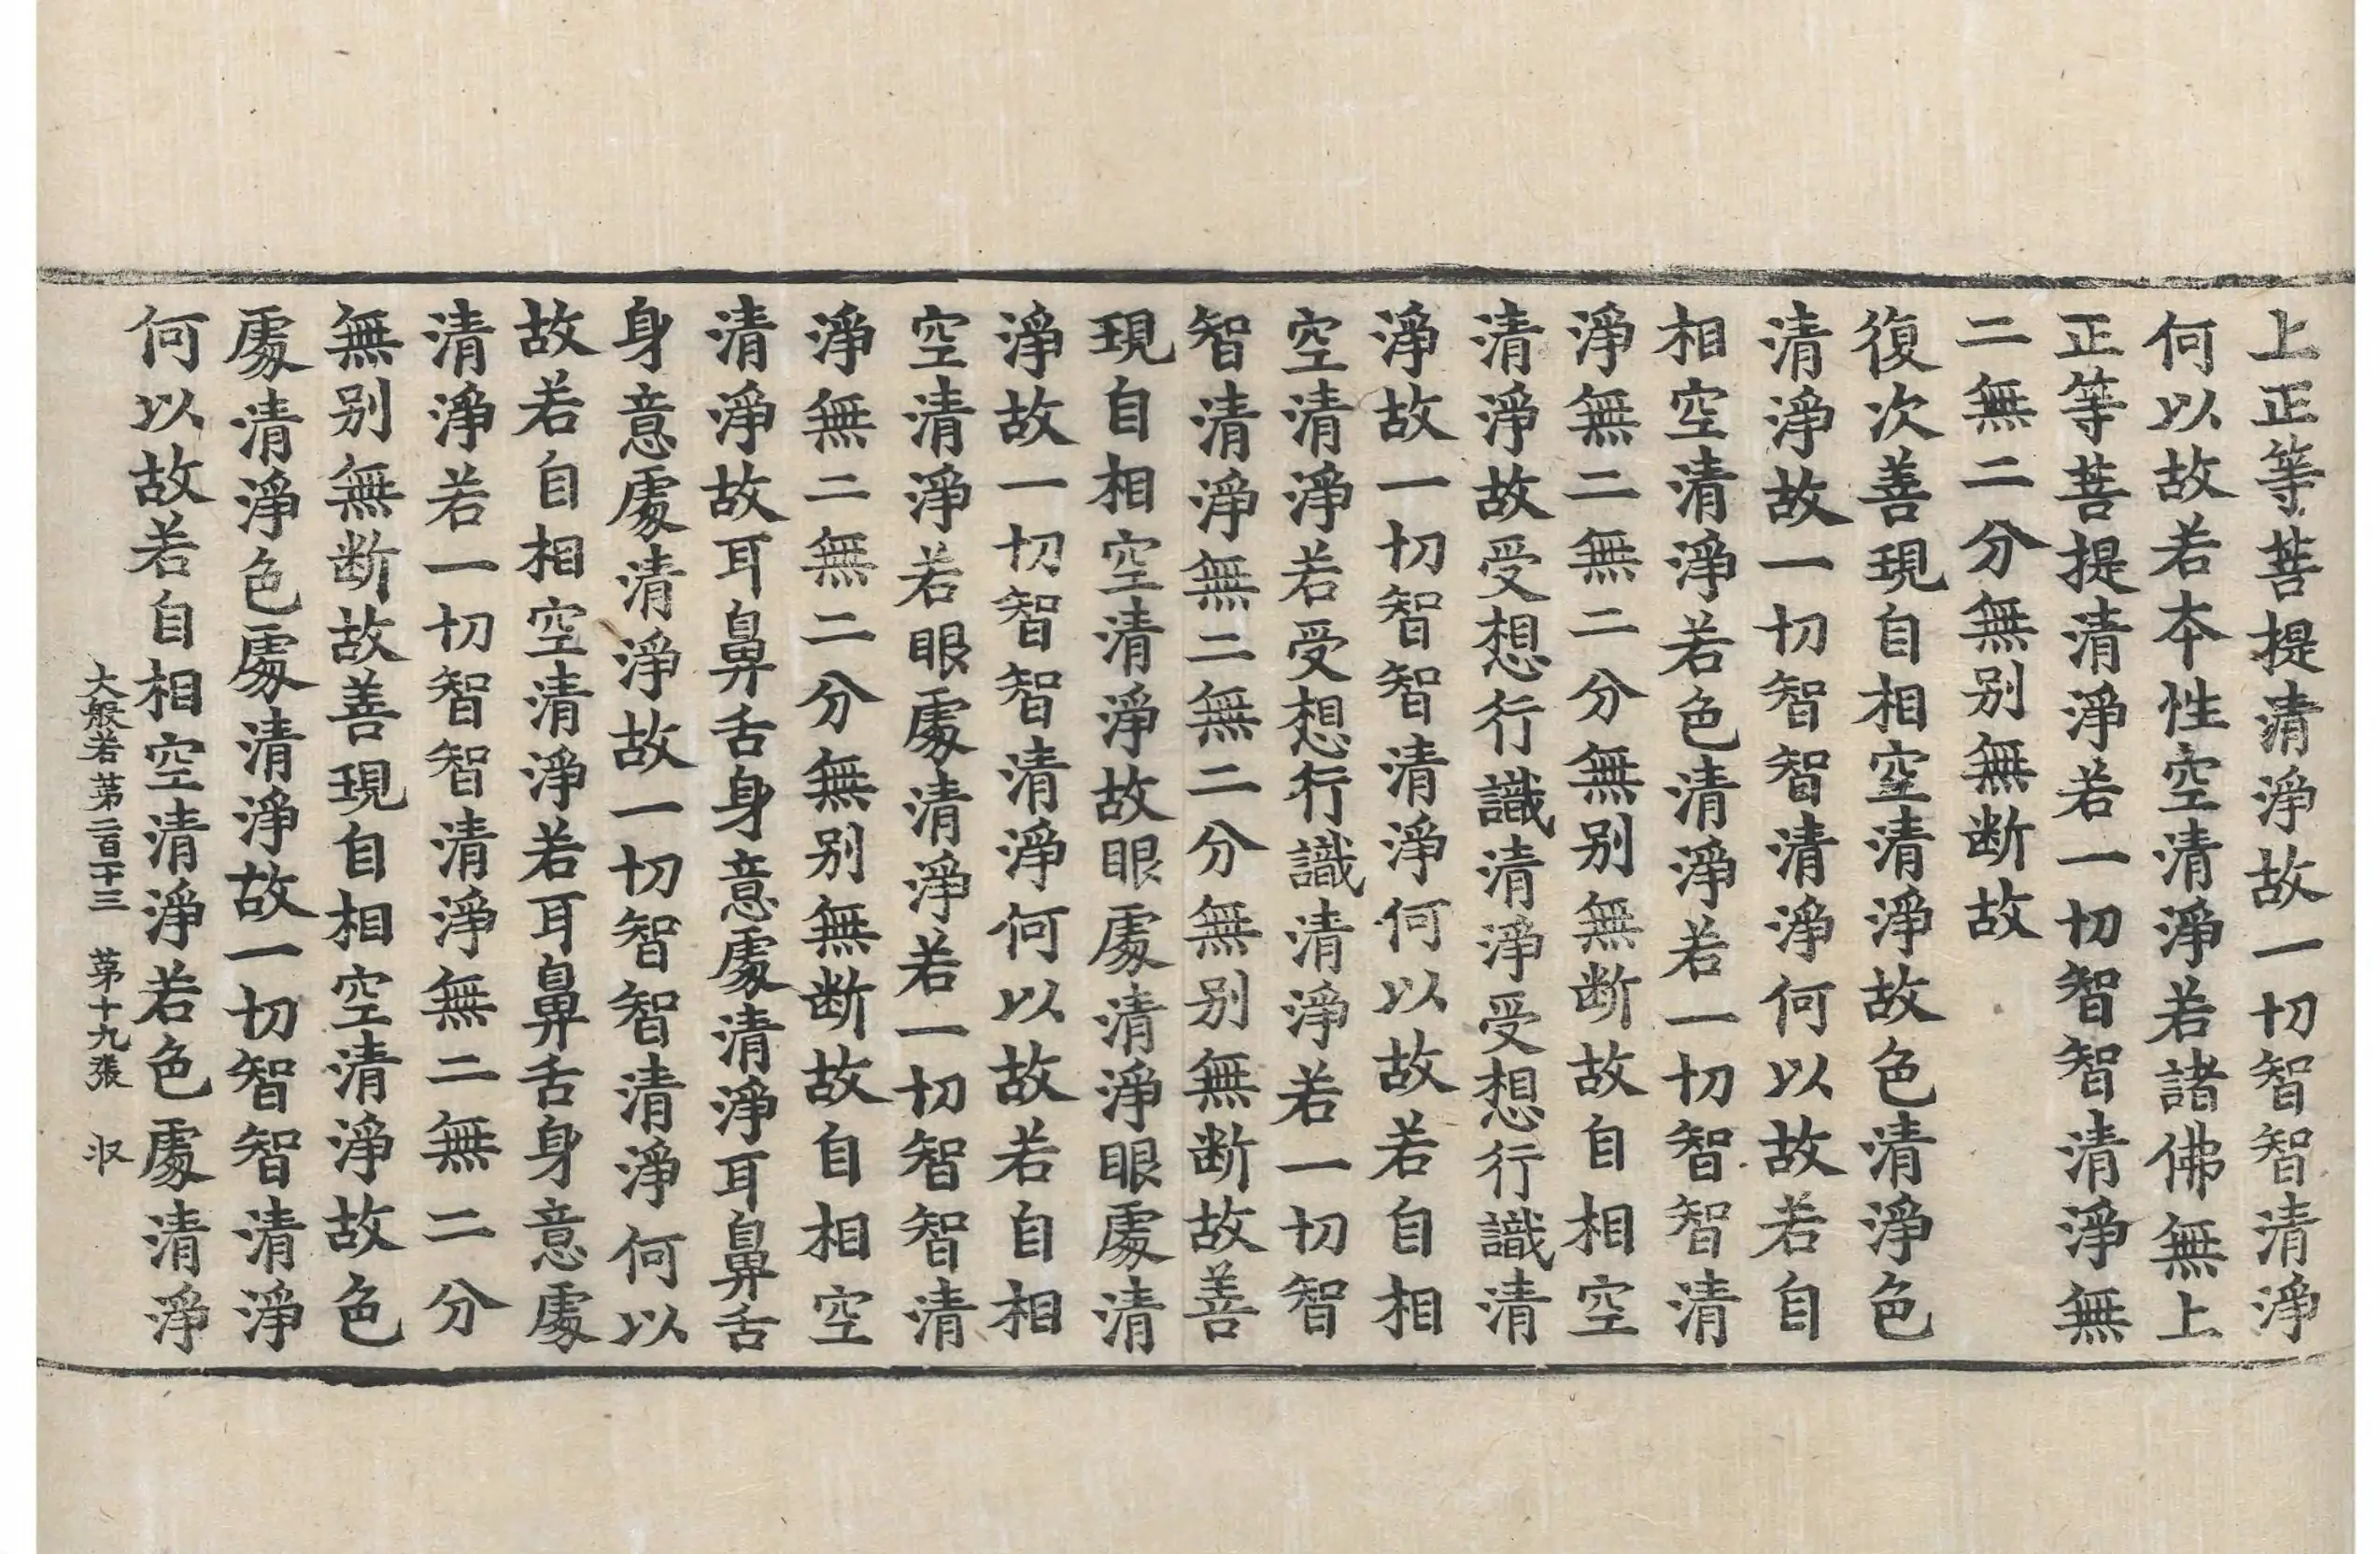 上正等菩提清淨故一切智智清淨
何以故若本性空清淨若諸佛無上
正等菩提清淨若一切智智清淨無
二無二分無别無断故
復次善現自相空清淨故色清淨色
清淨故一切智智清淨何以故若自
相空清淨若色清淨若一切智智清
淨無二無二分無别無断故自相空
清淨故受想行識清淨受想行識清
淨故一切智智清淨何以故若自相
空清淨若受想行識清淨若一切智
智清淨無二無二分無别無断故善
現自相空清淨故眼處清淨眼處清
淨故一切智智清淨何以故若自相
空清淨若眼處清淨若一切智智清
淨無二無二分無别無断故自相空
清淨故耳鼻舌身意處清淨耳鼻舌
身意處清淨故一切智智清淨何以
故若自相空清淨若耳鼻舌身意處
清淨若一切智智清淨無二無二分
無别無断故善現自相空清淨故色
處清淨色處清淨故一切智智清淨
何以故若自相空清淨若色處清淨
大般若第二百十三 第十九張 収